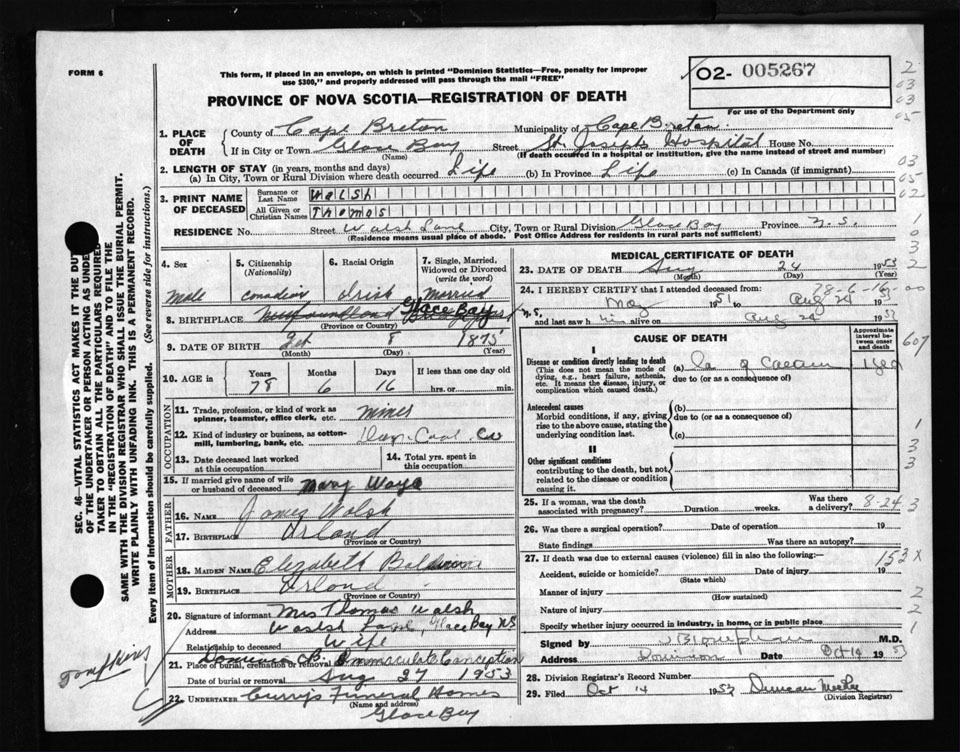 FORM 6
This form, if placed in an envelope, on which is printed "Dominion Statistics—Free, penalty for improper
use $300," and properly addressed will pass through the mail "FREE"
02- 005267
For use of the Department only
PROVINCE OF NOVA SCOTIA—REGISTRATION OF DEATH
SEC. 46—VITAL STATISTICS ACT MAKES IT THE DUTY
OF THE UNDERTAKER OR PERSON ACTING AS UNDER-
TAKER TO OBTAIN ALL THE PARTICULARS REQUIRED
IN THE "REGISTRATION OF DEATH" AND TO FILE THE
SAME WITH THE DIVISION REGISTRAR WHO SHALL ISSUE THE BURIAL PERMIT.
WRITE PLAINLY WITH UNFADING INK. THIS IS A PERMANENT RECORD.
Every item of Information should be carefully supplied. (See reverse side for instructions.)
1. PLACE OF DEATH County of Cape Breton Municipality of Cape Breton
If in City or Town Glace Bay Street St Josephs Hospital House No.
(Name) (If death occurred in a hospital or institution, give the name instead of street and number)
2. LENGTH OF STAY (in years, months and days)
(a) In City, Town or Rural Division where death occurred Life (b) In Province Life (c) In Canada (if immigrant)
3. PRINT NAME OF DECEASED Surname or Last Name Walsh
All Given or Christian Names Thomas
RESIDENCE No. Street Walsh Lane City, Town or Rural Division Glace Bay Province N.S.
(Residence means usual place of abode. Post Office Address for residents in rural parts not sufficient)
4. Sex 5. Citizenship (Nationality) 6. Racial Origin 7. Single, Married, Widowed or Divorced (write the word)
Male Canadian Irish Married
8. BIRTHPLACE Newfoundland Glace Bay N.S.
(Province or Country)
9. DATE OF BIRTH 8 1875
(Month) (Day) (Year)
10. AGE in Years Months Days If less than one day old
78 6 16 hrs. or min.
OCCUPATION
11. Trade, profession, or kind of work as spinner, teamster, office clerk, etc. Miner
12. Kind of industry or business, as cotton-mill, lumbering, bank, etc. Dom. Coal Co
13. Date deceased last worked at this occupation 14. Total yrs. spent in this occupation
15. If married give name of wife or husband of deceased Mary Waye
FATHER
16. NAME James Walsh
17. BIRTHPLACE Irland
(Province or Country)
MOTHER
18. MAIDEN NAME Elizabeth
19. BIRTHPLACE Irland
(Province or Country)
20. Signature of informant Mrs Thomas Walsh
Address Walsh Lane, Glace Bay NS
Relationship to deceased Wife
21. Place of burial, cremation or removal Dominion C.B. Immaculate Conception
Date of burial or removal Aug 27 1953
22. UNDERTAKER Curry's Funeral Homes
(Name and address)
Glace Bay
Tompkins
MEDICAL CERTIFICATE OF DEATH
23. DATE OF DEATH Aug 24 1953
(Month) (Day) (Year)
24. I HEREBY CERTIFY that I attended deceased from: 78-6-16-00
May 1951 to Aug 24 1953
and last saw h im alive on Aug 24 1953
CAUSE OF DEATH
Approximate interval between onset and death
I
Disease or condition directly leading to death
(This does not mean the mode of dying, e.g., heart failure, asthenia, etc. It means the disease, injury, or complication which caused death.)
(a) Ca of Caecum
due to (or as a consequence of)
Antecedent causes
Morbid conditions, if any, giving rise to the above cause, stating the underlying condition last.
(b)
due to (or as a consequence of)
(c)
II
Other significant conditions
contributing to the death, but not related to the disease or condition causing it.
25. If a woman, was the death associated with pregnancy? Duration weeks. Was there a delivery? 8-24
26. Was there a surgical operation? Date of operation 19
State findings Was there an autopsy?
27. If death was due to external causes (violence) fill in also the following:— 153 X
Accident, suicide or homicide? Date of injury 19
(State which)
Manner of injury
(How sustained)
Nature of injury
Specify whether injury occurred in industry, in home, or in public place
Signed by M.D.
Address Dominion Date Oct 14 1953
28. Division Registrar's Record Number
29. Filed Oct 14 1953 Duncan
(Division Registrar)
2
03
03
05
03
05
02
1
0
3
2
607
1
3
3
3
2
2
1